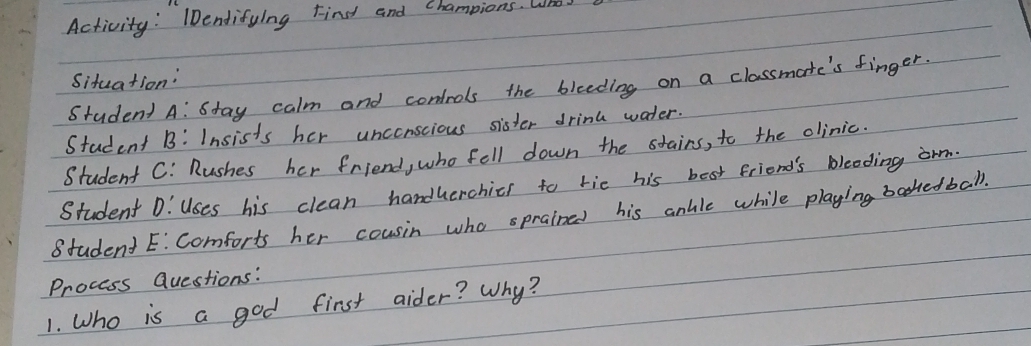 Activity: IDentifying First and Champions.
Situation:
Student A: Stay calm and controls the bleeding on a classmate's finger.
Student B: Insists her unconscious sister drink water.
Student C: Rushes her friend, who fell down the stairs, to the clinic.
Student D: Uses his clean handkerchief to tie his best friend's bleeding arm.
Student E: Comforts her cousin who sprained his ankle while playing basketball.
Process Questions:
1. Who is a god first aider? Why?